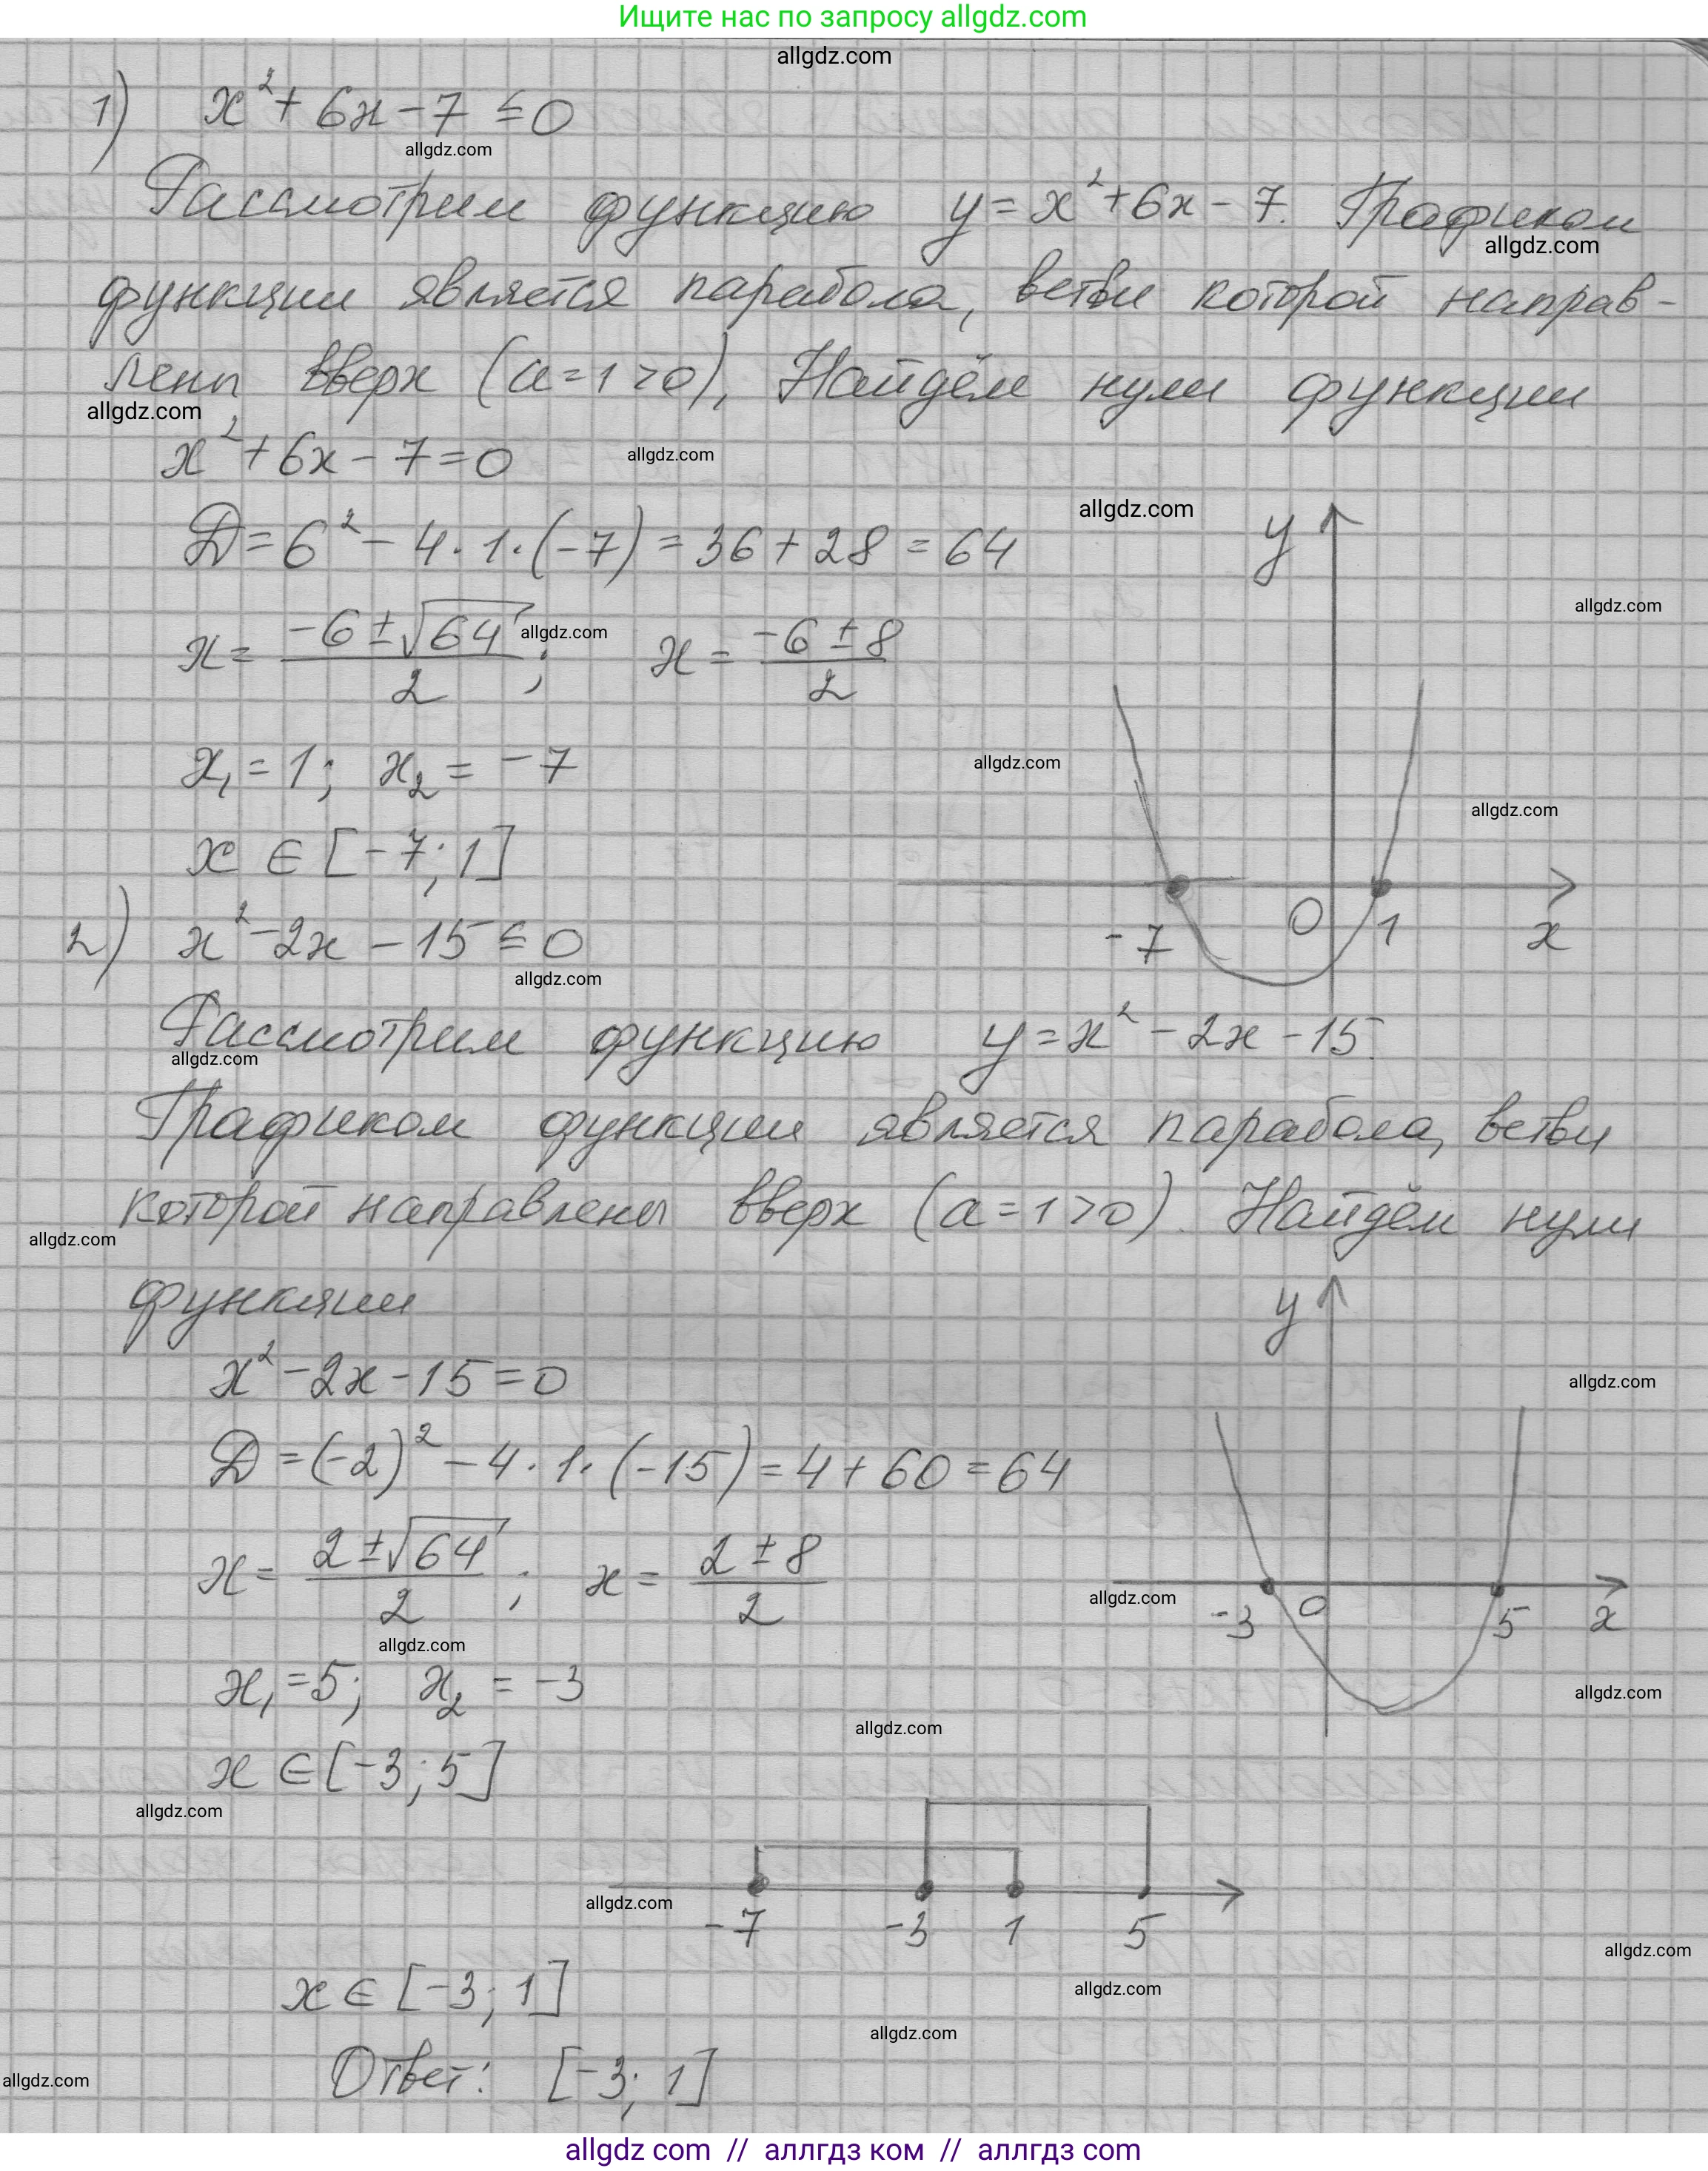 Ищите нас по запросу allgdz.com
allgdz.com
1) x² + 6x - 7 ≤ 0
allgdz.com
Рассмотрим функцию y = x² + 6x - 7. Графиком
allgdz.com
функции является парабола, ветви которой направ-
лены вверх (a = 1 > 0), Найдём нули функции
allgdz.com
x² + 6x - 7 = 0
allgdz.com
allgdz.com
y
D = 6² - 4 · 1 · (-7) = 36 + 28 = 64
allgdz.com
x = (-6 ± √64)/2 ; x = (-6 ± 8)/2
allgdz.com
x₁ = 1; x₂ = -7
allgdz.com
allgdz.com
x ∈ [-7; 1]
-7 0 1 x
2) x² - 2x - 15 ≤ 0
allgdz.com
Рассмотрим функцию y = x² - 2x - 15.
allgdz.com
Графиком функции является парабола, ветви
которой направлены вверх (a = 1 > 0). Найдём нули
allgdz.com
функции
y
x² - 2x - 15 = 0
allgdz.com
D = (-2)² - 4 · 1 · (-15) = 4 + 60 = 64
x = (2 ± √64)/2 ; x = (2 ± 8)/2
allgdz.com
-3 0 5 x
allgdz.com
x₁ = 5; x₂ = -3
allgdz.com
allgdz.com
x ∈ [-3; 5]
allgdz.com
allgdz.com
-7 -3 1 5
allgdz.com
x ∈ [-3; 1]
allgdz.com
allgdz.com
Ответ: [-3; 1]
allgdz.com
allgdz com // аллгдз ком // аллгдз com